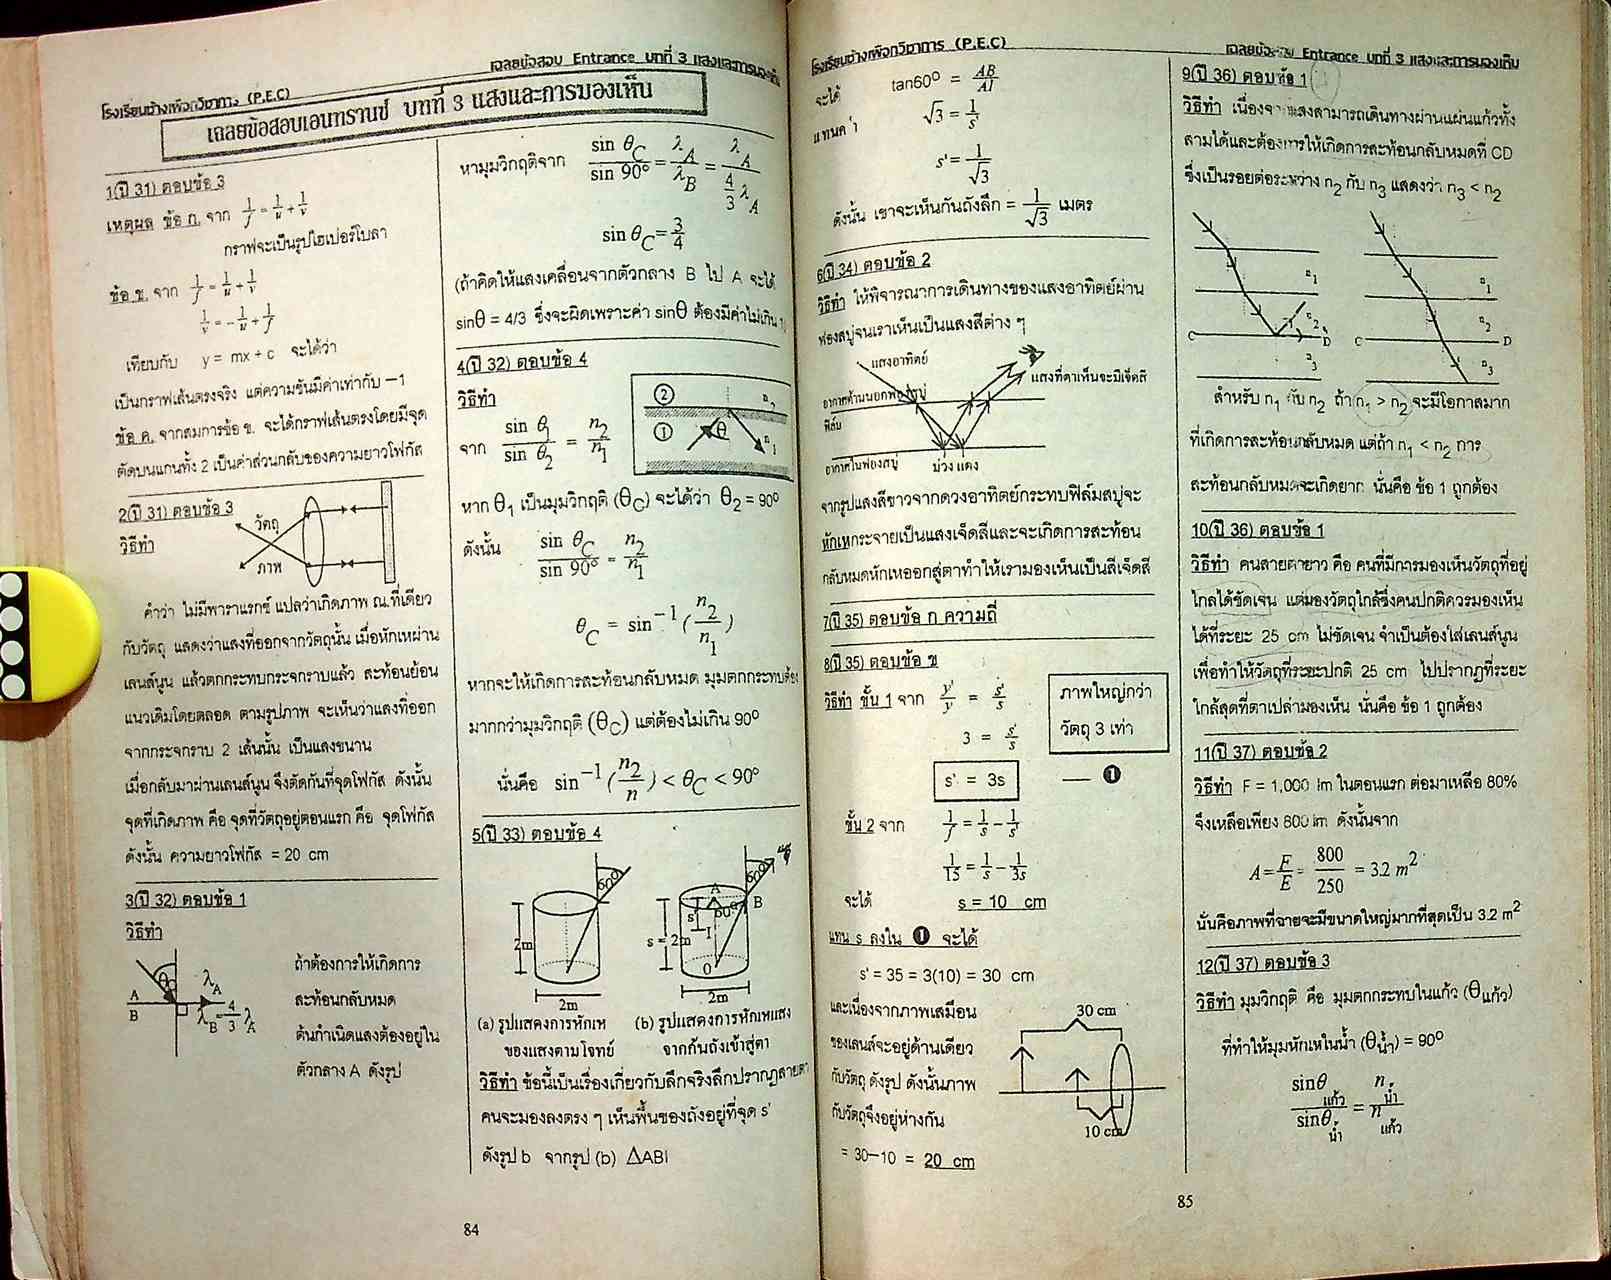 โรงเรียนช้างเผือกวิชาการ (P.E.C)
เฉลยข้อสอบ Entrance บทที่ 3 แสงและการมองเห็น
เฉลยข้อสอบเอนทรานซ์ บทที่ 3 แสงและการมองเห็น
1(ปี 31) ตอบข้อ 3
เหตุผล ข้อ ก. จาก 1/f = 1/u + 1/v
กราฟจะเป็นรูปไฮเปอร์โบลา
ข้อ ข. จาก 1/f = 1/u + 1/v
1/v = -1/u + 1/f
เทียบกับ y = mx + c จะได้ว่า
เป็นกราฟเส้นตรงจริง แต่ความชันมีค่าเท่ากับ -1
ข้อ ค. จากสมการข้อ ข. จะได้กราฟเส้นตรงโดยมีจุด
ตัดบนแกนทั้ง 2 เป็นค่าส่วนกลับของความยาวโฟกัส
2(ปี 31) ตอบข้อ 3
วิธีทำ
วัตถุ
ภาพ
คำว่า ไม่มีพาราแรกซ์ แปลว่าเกิดภาพ ณ.ที่เดียว
กับวัตถุ แสดงว่าแสงที่ออกจากวัตถุนั้น เมื่อหักเหผ่าน
เลนส์นูน แล้วตกกระทบกระจกราบแล้ว สะท้อนย้อน
แนวเดิมโดยตลอด ตามรูปภาพ จะเห็นว่าแสงที่ออก
จากกระจกราบ 2 เส้นนั้น เป็นแสงขนาน
เมื่อกลับมาผ่านเลนส์นูน จึงตัดกันที่จุดโฟกัส ดังนั้น
จุดที่เกิดภาพ คือ จุดที่วัตถุอยู่ตอนแรก คือ จุดโฟกัส
ดังนั้น ความยาวโฟกัส = 20 cm
3(ปี 32) ตอบข้อ 1
วิธีทำ
θC
A
B
λA
λB = 4/3 λA
ถ้าต้องการให้เกิดการ
สะท้อนกลับหมด
ต้นกำเนิดแสงต้องอยู่ใน
ตัวกลาง A ดังรูป
หามุมวิกฤติจาก sin θC / sin 90° = λA / λB = λA / (4/3 λA)
sin θC = 3/4
(ถ้าคิดให้แสงเคลื่อนจากตัวกลาง B ไป A จะได้
sinθ = 4/3 ซึ่งจะผิดเพราะค่า sinθ ต้องมีค่าไม่เกิน 1)
4(ปี 32) ตอบข้อ 4
วิธีทำ
จาก sin θ1 / sin θ2 = n2 / n1
②
①
θ
n2
n1
หาก θ1 เป็นมุมวิกฤติ (θC) จะได้ว่า θ2 = 90°
ดังนั้น sin θC / sin 90° = n2 / n1
θC = sin⁻¹ (n2 / n1)
หากจะให้เกิดการสะท้อนกลับหมด มุมตกกระทบต้อง
มากกว่ามุมวิกฤติ (θC) แต่ต้องไม่เกิน 90°
นั่นคือ sin⁻¹ (n2 / n) < θC < 90°
5(ปี 33) ตอบข้อ 4
60°
2m
2m
60°
A
B
60°
s'
I
s = 2m
O
2m
(a) รูปแสดงการหักเห
ของแสงตามโจทย์
(b) รูปแสดงการหักเหแสง
จากก้นถังเข้าสู่ตา
วิธีทำ ข้อนี้เป็นเรื่องเกี่ยวกับลึกจริงลึกปรากฏสายตา
คนจะมองลงตรง ๆ เห็นพื้นของถังอยู่ที่จุด s'
ดังรูป b จากรูป (b) △ABI
84
โรงเรียนช้างเผือกวิชาการ (P.E.C)
เฉลยข้อสอบ Entrance บทที่ 3 แสงและการมองเห็น
จะได้ tan60° = AB / AI
แทนค่า √3 = 1 / s'
s' = 1 / √3
ดังนั้น เขาจะเห็นก้นถังลึก = 1/√3 เมตร
6(ปี 34) ตอบข้อ 2
วิธีทำ ให้พิจารณาการเดินทางของแสงอาทิตย์ผ่าน
ฟองสบู่จนเราเห็นเป็นแสงสีต่าง ๆ
แสงอาทิตย์
แสงที่ตาเห็นจะมีเจ็ดสี
อากาศด้านนอกฟองสบู่
ฟิล์ม
อากาศในฟองสบู่
ม่วง แดง
จากรูปแสงสีขาวจากดวงอาทิตย์กระทบฟิล์มสบู่จะ
หักเหกระจายเป็นแสงเจ็ดสีและจะเกิดการสะท้อน
กลับหมดหักเหออกสู่ตาทำให้เรามองเห็นเป็นสีเจ็ดสี
7(ปี 35) ตอบข้อ ก ความถี่
8(ปี 35) ตอบข้อ ข
วิธีทำ ขั้น 1 จาก y'/y = s'/s
3 = s'/s
s' = 3s
❶
ภาพใหญ่กว่า
วัตถุ 3 เท่า
ขั้น 2 จาก 1/f = 1/s - 1/s'
1/15 = 1/s - 1/3s
จะได้ s = 10 cm
แทน s ลงใน ❶ จะได้
s' = 35 = 3(10) = 30 cm
และเนื่องจากภาพเสมือน
ของเลนส์จะอยู่ด้านเดียว
กับวัตถุ ดังรูป ดังนั้นภาพ
กับวัตถุจึงอยู่ห่างกัน
= 30-10 = 20 cm
30 cm
10 cm
9(ปี 36) ตอบข้อ 1
วิธีทำ เนื่องจากแสงสามารถเดินทางผ่านแผ่นแก้วทั้ง
สามได้และต้องการให้เกิดการสะท้อนกลับหมดที่ CD
ซึ่งเป็นรอยต่อระหว่าง n2 กับ n3 แสดงว่า n3 < n2
n1
n2
C D
n3
n1
n2
C D
n3
สำหรับ n1 กับ n2 ถ้า n1 > n2 จะมีโอกาสมาก
ที่เกิดการสะท้อนกลับหมด แต่ถ้า n1 < n2 การ
สะท้อนกลับหมดจะเกิดยาก นั่นคือ ข้อ 1 ถูกต้อง
10(ปี 36) ตอบข้อ 1
วิธีทำ คนสายตายาว คือ คนที่มีการมองเห็นวัตถุที่อยู่
ไกลได้ชัดเจน แต่มองวัตถุใกล้ซึ่งคนปกติควรมองเห็น
ได้ที่ระยะ 25 cm ไม่ชัดเจน จำเป็นต้องใส่เลนส์นูน
เพื่อทำให้วัตถุที่ระยะปกติ 25 cm ไปปรากฏที่ระยะ
ใกล้สุดที่ตาเปล่ามองเห็น นั่นคือ ข้อ 1 ถูกต้อง
11(ปี 37) ตอบข้อ 2
วิธีทำ F = 1,000 lm ในตอนแรก ต่อมาเหลือ 80%
จึงเหลือเพียง 800 lm ดังนั้นจาก
A = F/E = 800/250 = 3.2 m²
นั่นคือภาพที่ฉายจะมีขนาดใหญ่มากที่สุดเป็น 3.2 m²
12(ปี 37) ตอบข้อ 3
วิธีทำ มุมวิกฤติ คือ มุมตกกระทบในแก้ว (θแก้ว)
ที่ทำให้มุมหักเหในน้ำ (θน้ำ) = 90°
sinθแก้ว / sinθน้ำ = nน้ำ / nแก้ว
85